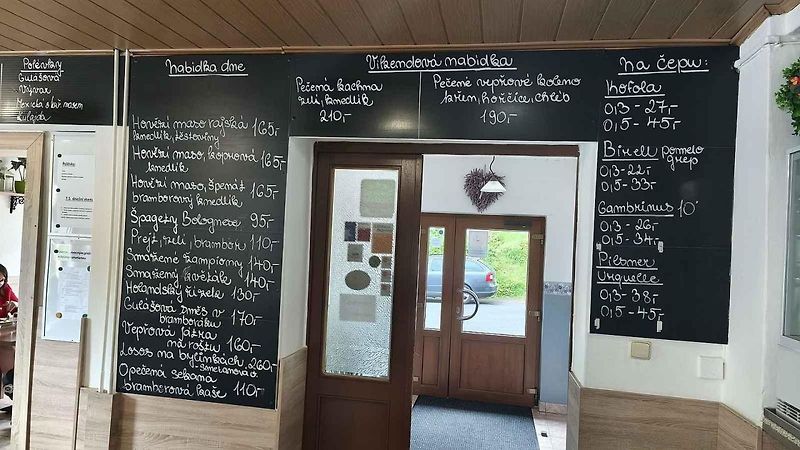 Polévky
Gulášová
Vývar
Mexická s kuř. masem
Kulajda
Nabídka dne
Hovězí maso, rajská 165,-
knedlík, těstoviny
Hovězí maso, koprová 165,-
knedlík
Hovězí maso, špenát 165,-
bramborový knedlík
Špagety Bolognese 95,-
Prejt, zelí, brambor 110,-
Smažené žampiony 140,-
Smažený květák 140,-
Holandský řízek 130,-
Gulášová směs v 170,-
bramboráku
Vepřová játra
na roštu 160,-
Losos na bylinkách 260,-
-smetanová o.
Opečená sekaná
bramborová kaše 110,-
Víkendová nabídka
Pečená kachna
zelí, knedlík
210,-
Pečené vepřové koleno
křen, hořčice, chléb
190,-
Na čepu:
Kofola
0,3 - 27,-
0,5 - 45,-
Birell pomelo
grep
0,3 - 22,-
0,5 - 33,-
Gambrinus 10°
0,3 - 26,-
0,5 - 34,-
Pilsner
Urquelle
0,3 - 38,-
0,5 - 45,-